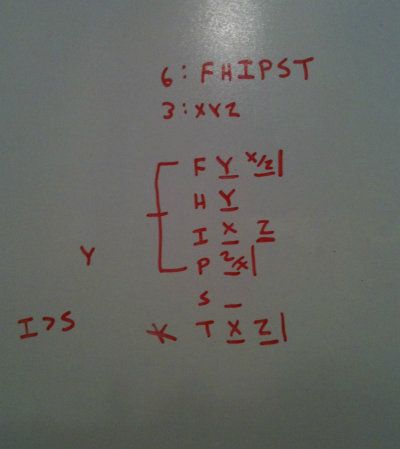 6: FHIPST
3: XYZ
F Y X/Z|
H Y
I X Z
Y P Z/X|
S _
I>S * T X Z|